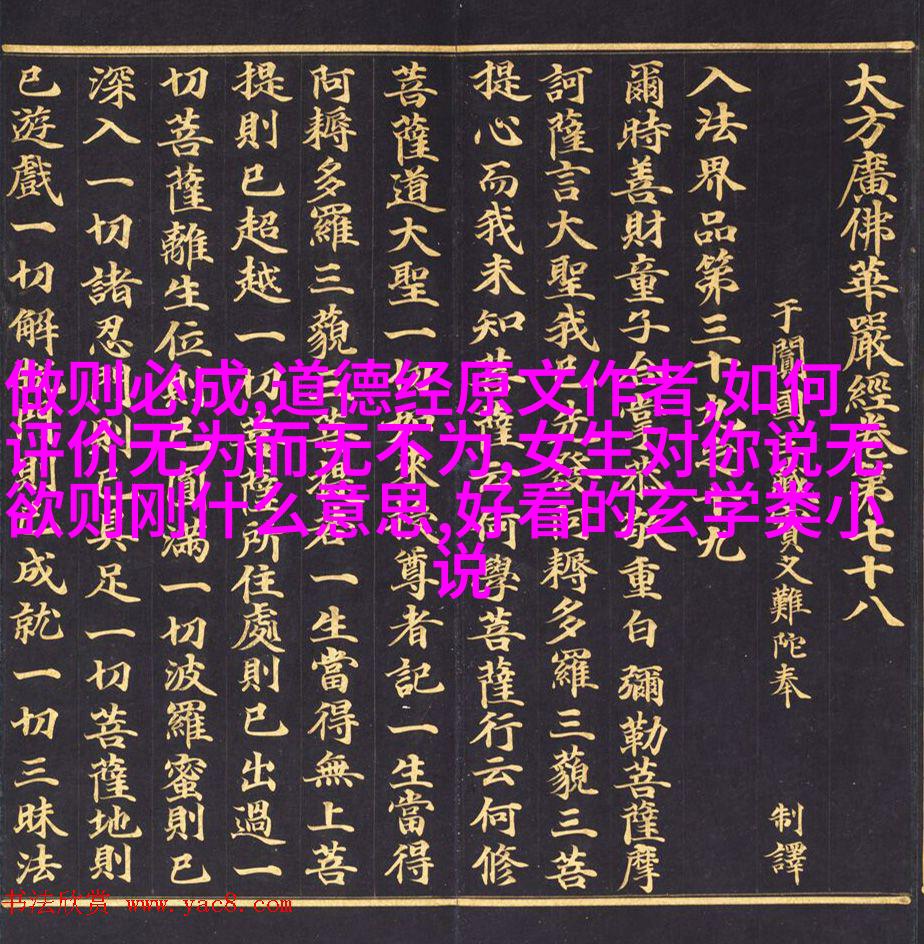 大方廣佛華嚴經卷第七十八
于闐國 實叉難陀奉 制譯
入法界品第三十九之十九
爾時善財童子合掌恭敬重白彌勒菩薩摩
訶薩言大聖我已先發阿耨多羅三藐三菩
提心而我未知菩薩云何學菩薩行云何修
菩薩道大聖一切如來授尊者記一生當得
阿耨多羅三藐三菩提若一生當得無上菩
提則已超越一切菩薩所住處則已出過一
切菩薩離生位則已圓滿一切波羅蜜則已
深入一切諸忍門則已具足一切菩薩地則
已遊戲一切解脫門則已成就一切三昧法
做则必成,道德经原文作者,如何
评价无为而无不为,女生对你说无
欲则刚什么意思,好看的玄学类小
说
书法欣赏 www.yac8.com